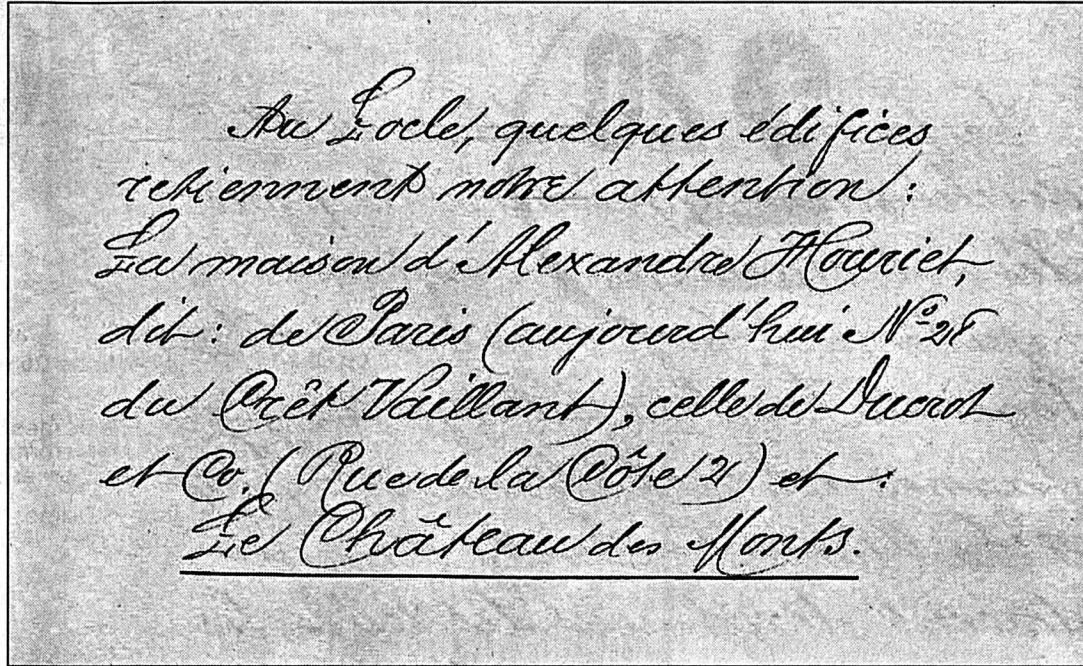 Au Locle, quelques édifices
retiennent notre attention :
La maison d'Alexandre Houriet,
dit : de Paris (aujourd'hui N° 28
du Crêt Vaillant), celle de Ducrot
et Co. (Rue de la Côte 21) et :
Le Château des Monts.